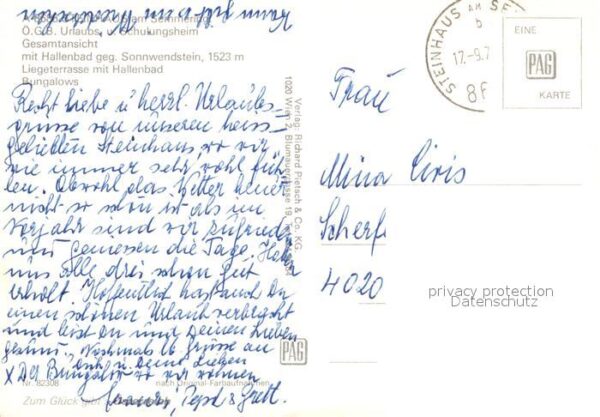 am Semmering
Ö.G.B. Urlaubs- u. Schulungsheim
Gesamtansicht
mit Hallenbad geg. Sonnwendstein, 1523 m
Liegeterrasse mit Hallenbad
Bungalows
Recht liebe u. herzl. Urlaubs-
grüsse von unseren heiss-
geliebten Steinhaus wo wir
wie immer sehr wohl füh-
len. Obwohl das Wetter heuer
nicht so schön ist als im
Vorjahr sind wir zufrieden
und geniessen die Tage. Haben
uns alle drei schon gut
erholt. Hoffentlich hast auch Du
einen schönen Urlaub verbracht
und bist Du und Deinen Lieben
gesund. Nochmals lb Grüsse an
Dich u. Deine Lieben
X Der Bungalow wo wir wohnen
Pepi & Gretl.
Nr. 82308
nach Original-Farbaufnahmen
Zum Glück gibt
Verlag: Richard Pietsch & Co. KG.
1020 Wien 2, Blumauergasse 19
PAG
STEINHAUS AM SE
b
17.-9.7
86
EINE
PAG
KARTE
Frau
Mina Ciris
Scherf
4020
privacy protection
Datenschutz